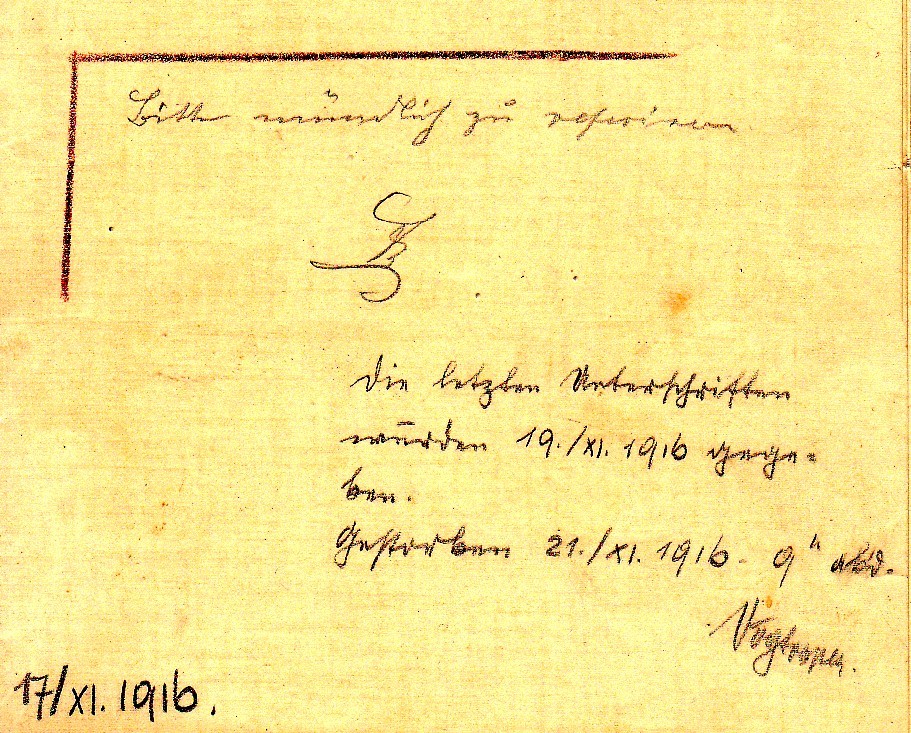 Bitte mündlich zu referiren
Die letzten Unterschriften
wurden 19./XI. 1916 gege-
ben.
Gestorben 21./XI. 1916 - 9h abd.
17/XI. 1916.